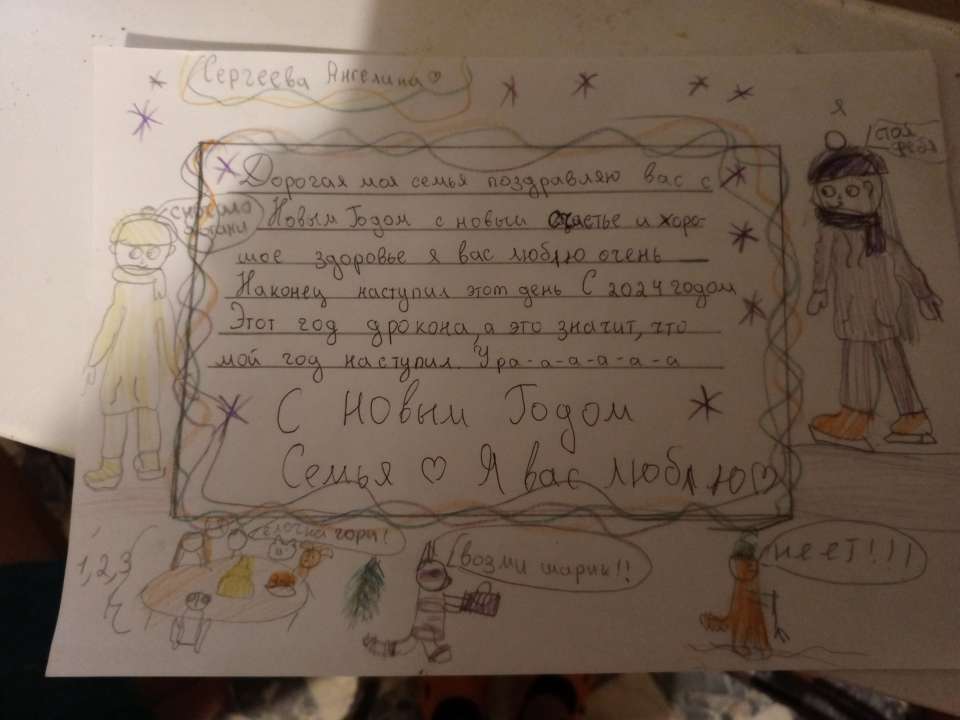 Сергеева Ангелина
я
стоя
Дорогая моя семья поздравляю вас с
Новым Годом с новым счастье и хоро-
шое здоровье я вас люблю очень
Наконец наступил этот день С 2024 годом
Этот год дрокона, а это значит, что
мой год наступил. Ура-а-а-а-а-а
С Новым Годом
Семья ♡ Я вас люблю ♡
1, 2, 3
ёлочка гори!
возми шарик!!
неет!!!